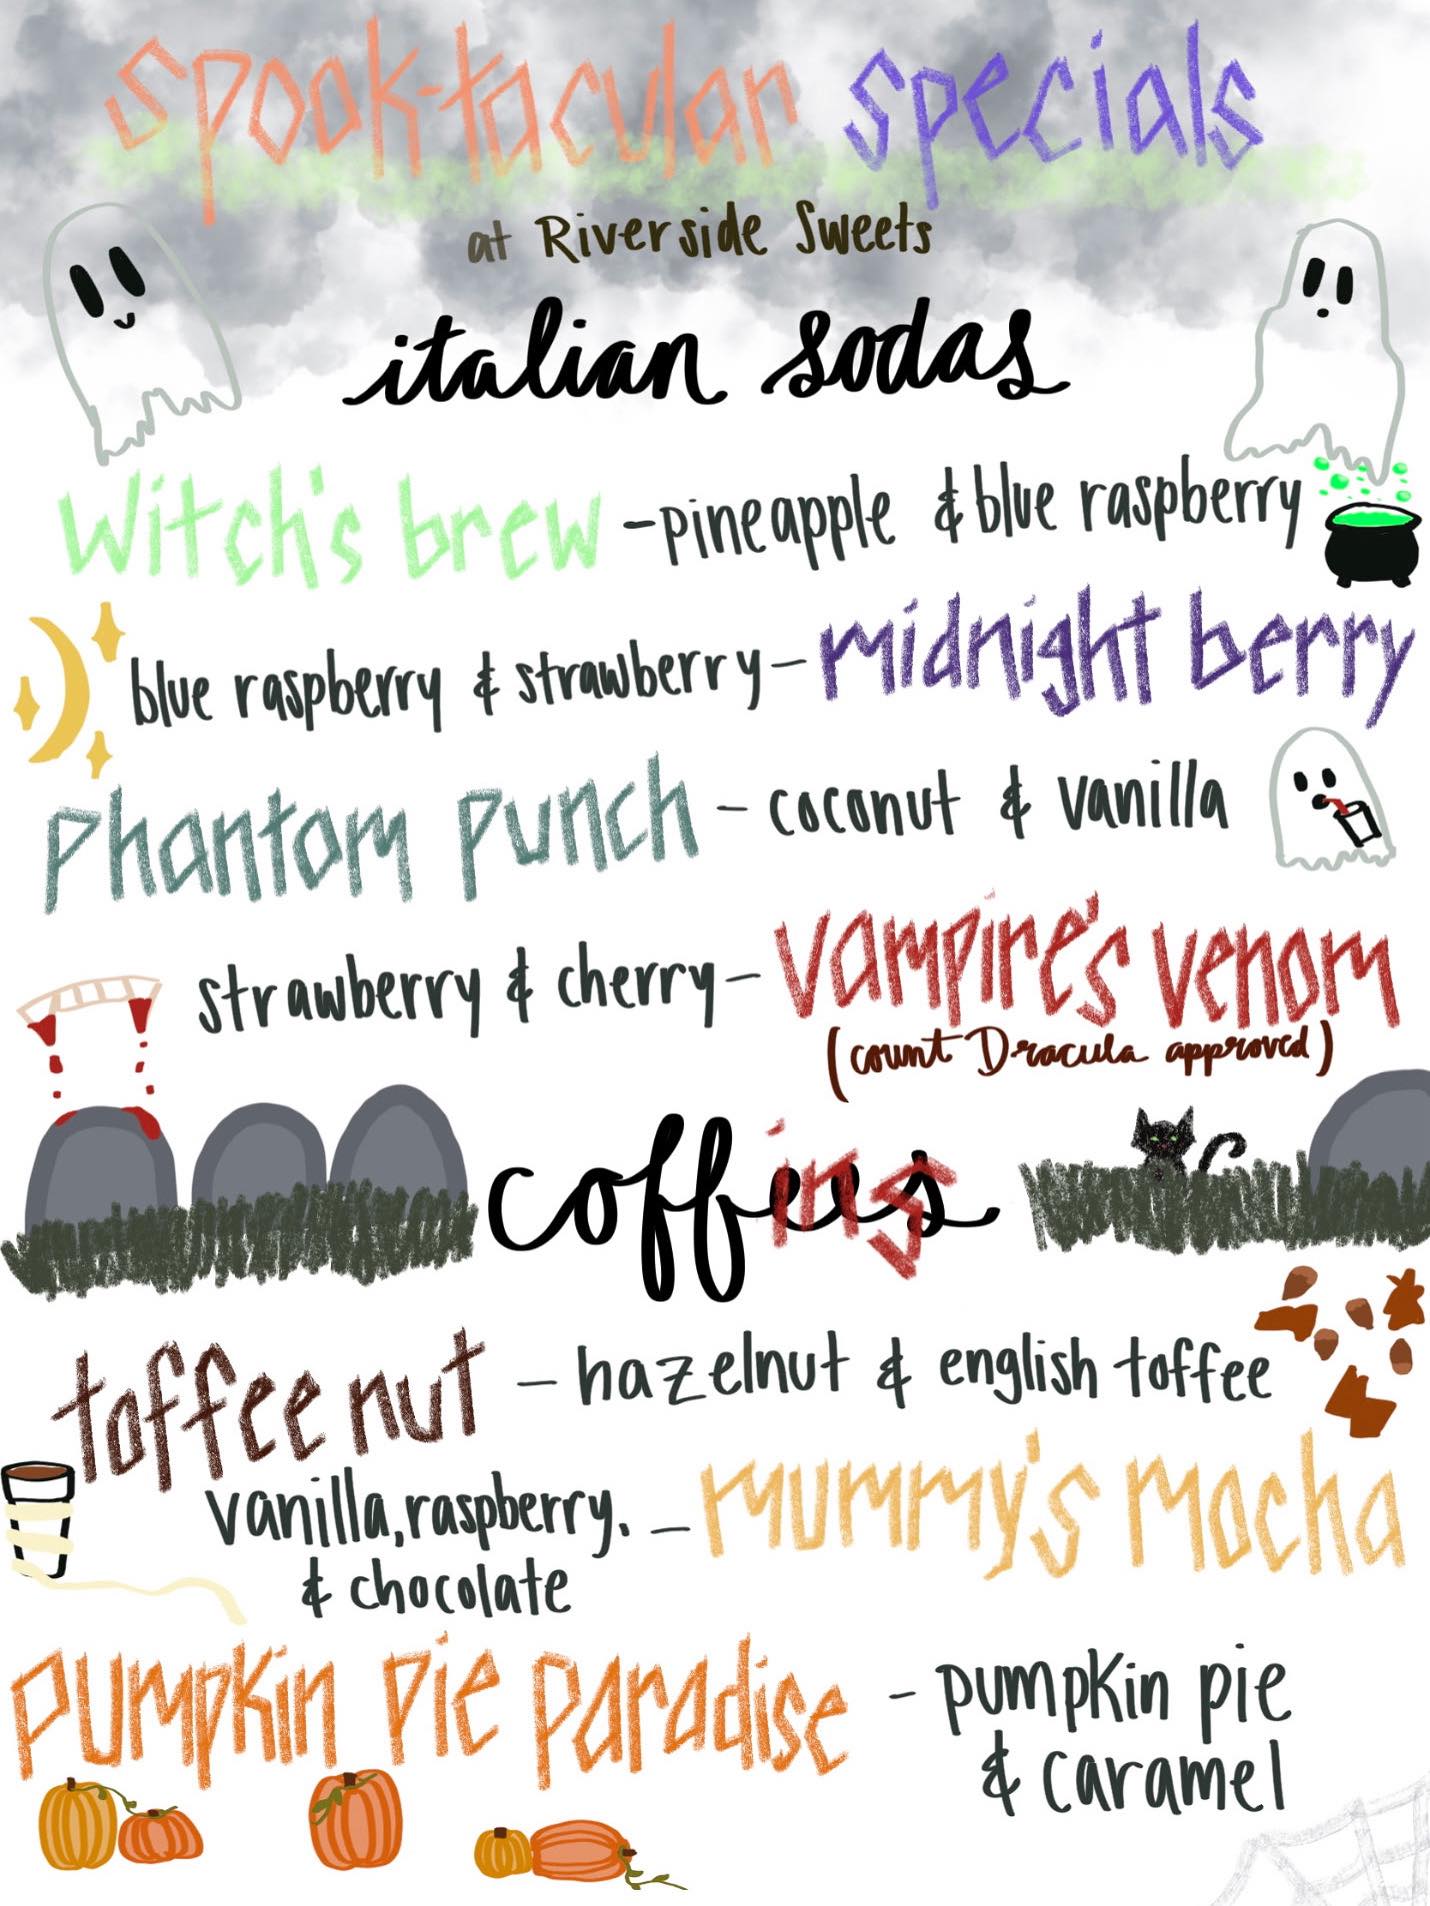 spook-tacular specials
at Riverside Sweets
italian sodas
witch's brew - pineapple & blue raspberry
blue raspberry & strawberry - midnight berry
phantom punch - coconut & vanilla
strawberry & cherry - vampire's venom
(count Dracula approved)
coffins
toffee nut - hazelnut & english toffee
vanilla, raspberry, - mummy's mocha
& chocolate
pumpkin pie paradise - pumpkin pie
& caramel